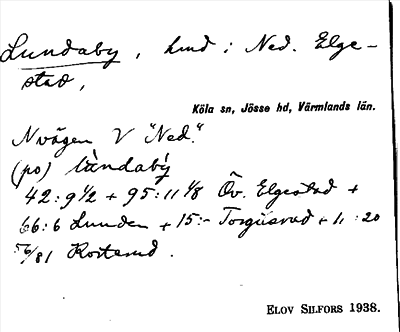 Lundaby, hmd i Ned. Elge-
stad,
Köla sn, Jösse hd, Värmlands län.
N vägen V "Ned."
(po) lùndabý
42:9½ + 95:11 ⅛ Öv. Elgestad +
66:6 Lunden + 15:- Torgusrud +
Elov Silfors 1938.